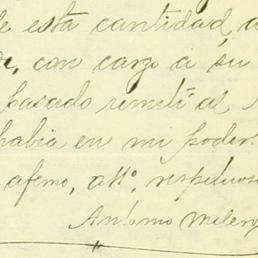 de esta cantidad, a
con cargo a su
pasado remití al
habia en mi poder.
afmo, atto, respetuos
Antonio Melero